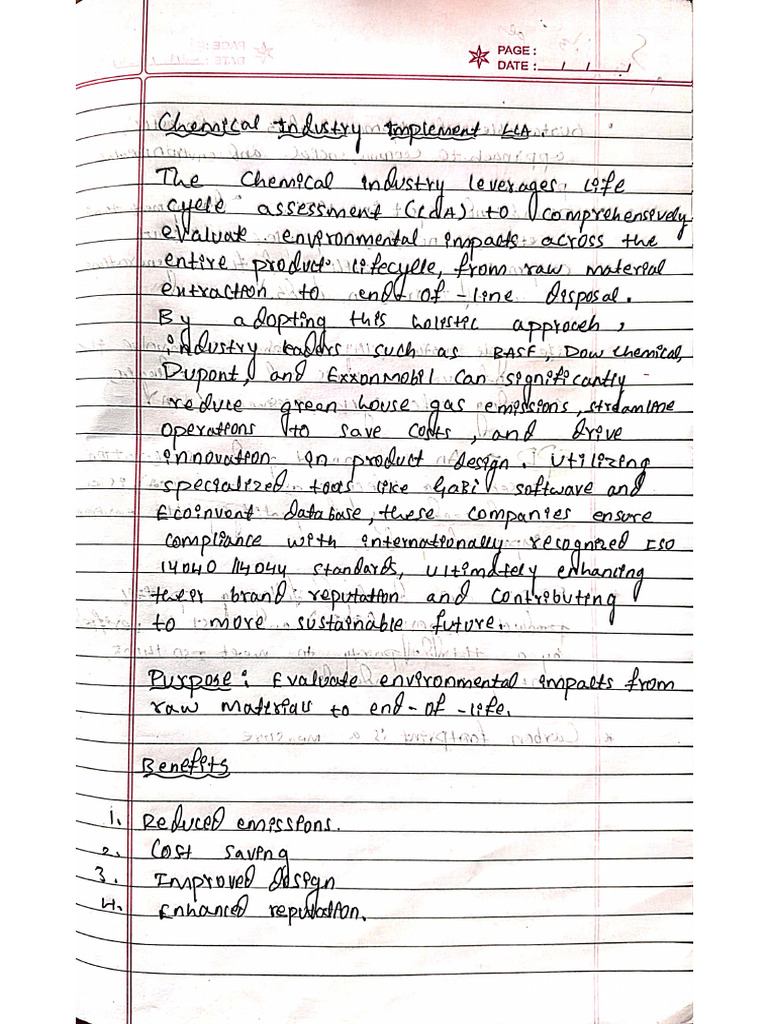 PAGE :
DATE : / /
Chemical Industry Implement LCA
The chemical industry leverages life
cycle assessment (LCA) to comprehensively
evaluate environmental impacts across the
entire product lifecycle, from raw material
extraction to end-of-line disposal.
By adopting this holistic approceh,
industry leaders such as BASF, Dow chemical,
Dupont, and ExxonMobil can significantly
reduce green house gas emissions, streamline
operations to save costs, and drive
innovation in product design. Utilizing
specialized tools like GaBi software and
Ecoinvent database, these companies ensure
compliance with internationally recognized ISO
14040 /14044 standards, ultimately enhancing
their brand reputation and contributing
to more sustainable future.
Purpose: Evaluate environmental impacts from
raw materials to end-of-life.
Benefits
1. Reduced emissions.
2. Cost saving
3. Improved design
4. Enhanced reputation.